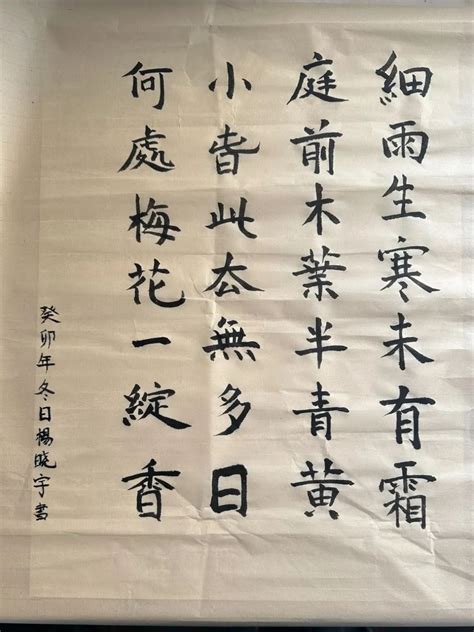 細雨生寒未有霜
庭前木葉半青黄
小旾此厺無多日
何處梅花一綻香
癸卯年冬日楊晓宇書